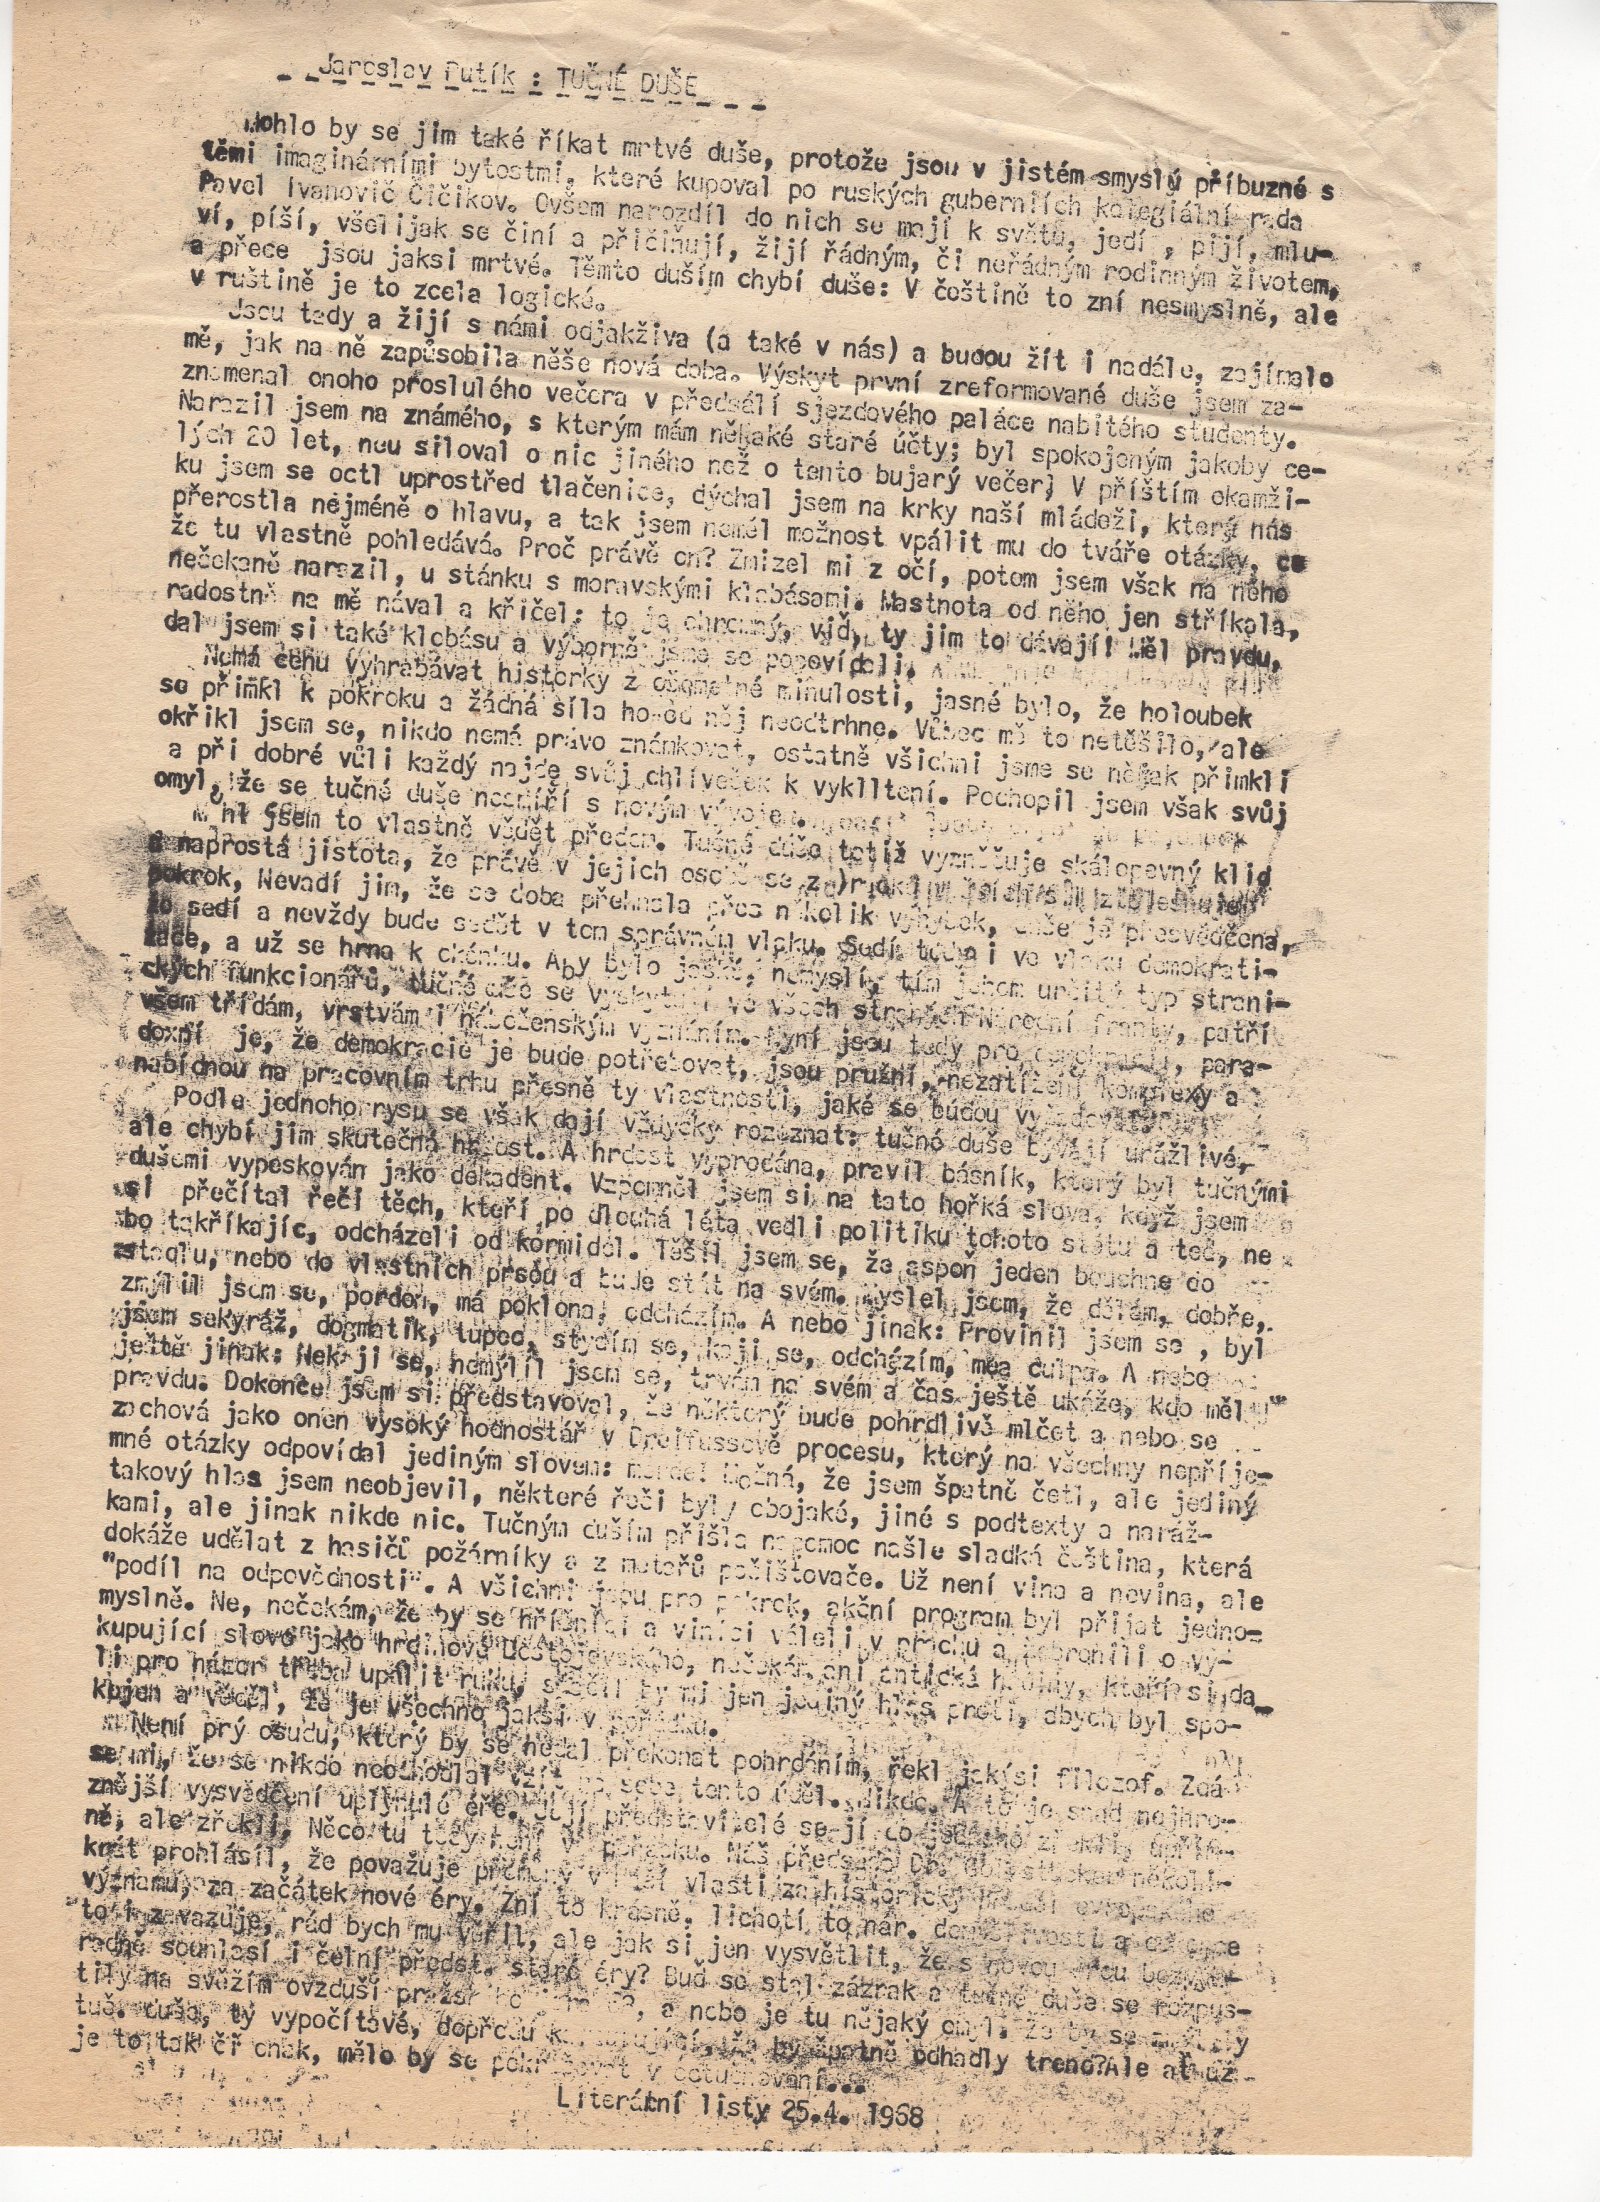 Jaroslav Putík : TUČNÉ DUŠE
Mohlo by se jim také říkat mrtvé duše, protože jsou v jistém smyslu příbuzné s
těmi imaginárními bytostmi, které kupoval po ruských guberniích kolegiální rada
Pavel Ivanovič Čičikov. Ovšem narozdíl do nich se mají k světu, jedí , pijí, mlu-
ví, píší, všelijak se činí a přičiňují, žijí řádným, či neřádným rodinným životem,
a přece jsou jaksi mrtvé. Těmto duším chybí duše: V češtině to zní nesmyslně, ale
v ruštině je to zcela logické.
Jsou tedy a žijí s námi odjakživa (a také v nás) a budou žít i nadále, zajímalo
mě, jak na ně zapůsobila něše nová doba. Výskyt první zreformované duše jsem za-
znamenal onoho proslulého večera v předsálí sjezdového paláce nabitého studenty.
Narazil jsem na známého, s kterým mám nějaké staré účty; byl spokojeným jakoby ce-
lých 20 let, neu siloval o nic jiného než o tento bujarý večer; V příštím okamži-
ku jsem se octl uprostřed tlačenice, dýchal jsem na krky naší mládeži, který nás
přerostla nejméně o hlavu, a tak jsem neměl možnost vpálit mu do tváře otázky, co
že tu vlastně pohledává. Proč právě on? Zmizel mi z očí, potom jsem však na něho
nečekaně narazil, u stánku s moravskými klobásami. Mastnota od něho jen stříkala,
radostně na mě mával a křičel: to je ohromný, viď, ty jim to dávají! Měl pravdu,
dal jsem si také klobásu a výborně jsme se popovídali.
Nemá cenu vyhrabávat historky z minulosti, jasné bylo, že holoubek
se přimkl k pokroku a žádná síla ho od něj neodtrhne. Vůbec mě to netěšilo, ale
okřikl jsem se, nikdo nemá právo známkovat, ostatně všichni jsme se nějak přimkli
a při dobré vůli každý najde svůj chlíveček k vyklltení. Pochopil jsem však svůj
omyl, že se tučné duše nesmíří s novým vývojem.
M hl jsem to vlastně vědět předem. Tučné duše totiž vyznačuje skálopevný klid
a naprostá jistota, že právě v jejich osobě se
pokrok, Nevadí jim, že se doba přehnala přes několik výhybek, duše je přesvědčena,
že sedí a navždy bude sedět v tom správném vlaku. Sedí tedy i ve vlaku demokrati-
zace, a už se hrne k okénku. Aby bylo jasné, nemyslím tím jenom určitý typ strani-
ckých funkcionářů, tučné duše se vyskytují ve všech stranách Národní fronty, patří
všem třídám, vrstvám i náboženským vyznáním. Nyní jsou tedy pro demokracii, para-
doxní je, že demokracie je bude potřebovat, jsou pružní, nezatížení komplexy a
nabídnou na pracovním trhu přesně ty vlastnosti, jaké se budou vyžadovat.
Podle jednoho rysu se však dají vždycky rozeznat: tučné duše bývají urážlivé,
ale chybí jim skutečná hrdost. A hrdost vyprodána, pravil básník, který byl tučnými
dušemi vypeskován jako dekadent. Vzpomněl jsem si na tato hořká slova, když jsem
si přečítal řeči těch, kteří po dlouhá léta vedli politiku tohoto státu a teď, ne
bo takříkajíc, odcházeli od kormidel. Těšil jsem se, že aspoň jeden bouchne do
stolu, nebo do vlastních prsou a bude stát na svém. Myslel jsem, že dělám, dobře,
zmýlil jsem se, pardon, má poklona, odcházím. A nebo jinak: Provinil jsem se , byl
jsem sekyráž, dogmatik, tupec, stydím se, kaji se, odcházím, mea culpa. A nebo
ještě jinak: Nekaji se, nemýlil jsem se, trvám na svém a čas ještě ukáže, kdo měl
pravdu. Dokonce jsem si představoval, že některý bude pohrdlivě mlčet a nebo se
zachová jako onen vysoký hodnostář v Dreifussově procesu, který na všechny nepříje-
mné otázky odpovídal jediným slovem: merde! Možná, že jsem špatně četl, ale jediný
takový hlas jsem neobjevil, některé řeči byly obojaké, jiné s podtexty a naráž-
kami, ale jinak nikde nic. Tučným duším přišla napomoc našle sladká čeština, která
dokáže udělat z hasičů požárníky a z metařů počišťovače. Už není vina a nevina, ale
"podíl na odpovědnosti". A všichni jsou pro pokrok, akční program byl přijat jedno-
myslně. Ne, nečekám, že by se hříšníci a viníci váleli v prachu a žebronili o vy-
kupující slovo jako hrdinové Dostojevského, nečekám ani antické hrdiny, kteří si da_
li pro názor třeba upálit ruku, stačil by mi jen jediný hlas proti, abych byl spo-
kojen a věděl, že je všechno jaksi v pořádku.
Není prý osudu, který by se nedal překonat pohrdáním, řekl jakýsi filozof. Zdá
se mi, že se nikdo neodhodlal vzít na sebe tento úděl. Nikdo. A to je snad nejhro-
znější vysvědčení uplynulé éře. Její představitelé se jí do jednoho zřekli, upřím-
ně, ale zřekli. Něco tu tedy není v pořádku. Náš předseda Dr. Goldstücker několi-
krát prohlásil, že považuje přeměny v naší vlasti za historický předěl evropského
významu, za začátek nové éry. Zní to krásně, lichotí to nár. domýšlivosti a
to i zavazuje, rád bych mu věřil, ale jak si jen vysvětlit, že s novou érou
radně souhlasí i čelní předst. staré éry? Buď se stal zázrak a tučné duše se rozpus-
tily na svěžím ovzduší , a nebo je tu nějaký omyl. že by se zmýlily
tuč. duše, ty vypočítavé, dopředu kalkulující, že by špatně odhadly trend?Ale ať už
je to tak či onak, mělo by se pokračovat v odtučňování...
Literární listy 25.4. 1968